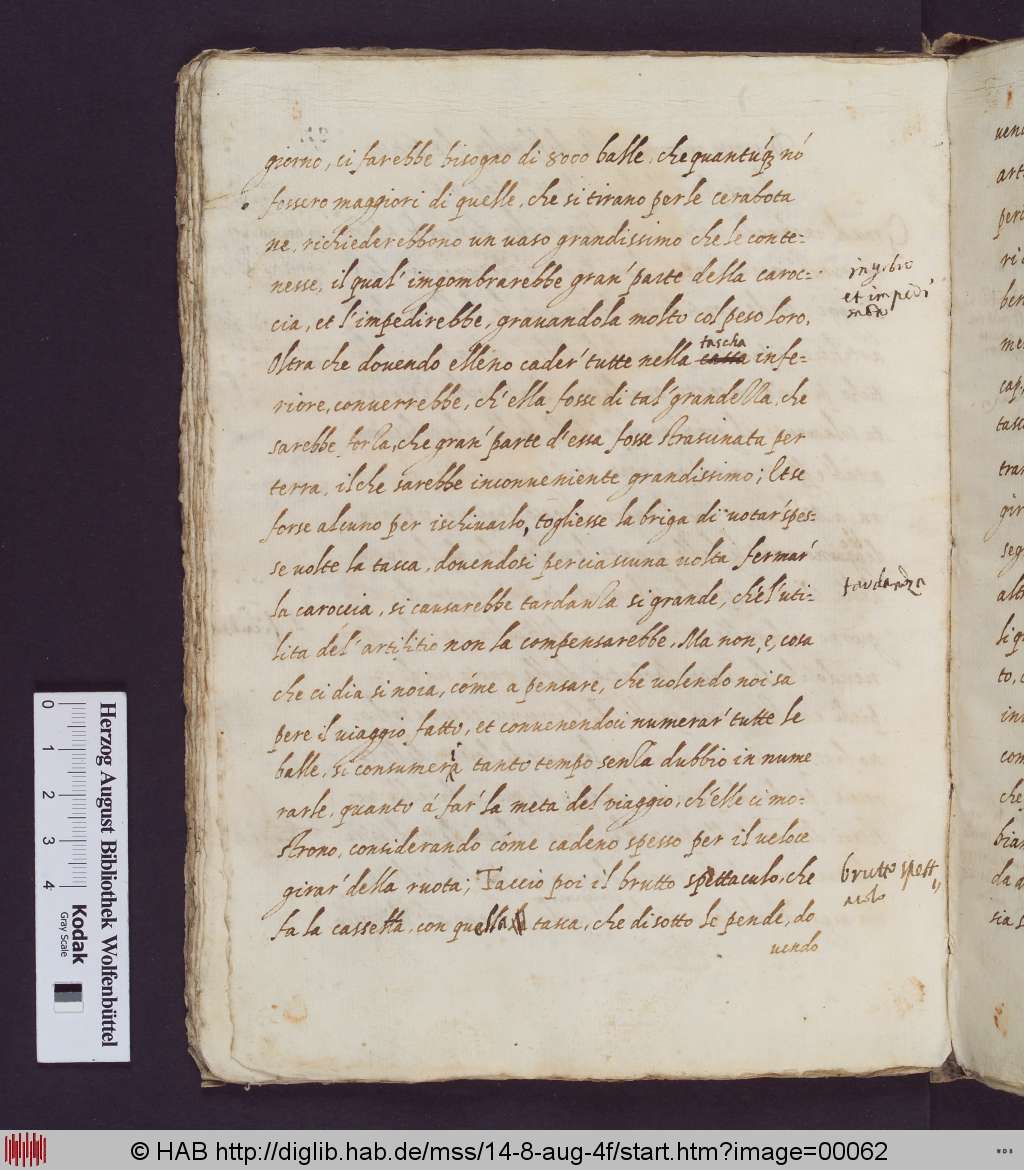 giorno, ci farebbe bisogno di 8000 balle, che quantúq3 nó
fossero maggiori di quelle, che si tirano per le cerabota
ne, richiederebbono un uaso grandissimo che le conte=
nesse, il qual' imgombrarebbe gran' parte della caroc=
cia, et l'impedirebbe, grauandola molto col peso loro,
Oltra che douendo elleno cader' tutte nella tascha infe=
riore, conuerrebbe, ch' ella fosse di tal' grandezza, che
sarebbe forza, che gran' parte d'essa fosse strascinata per
terra, il che sarebbe inconueniente grandissimo; Et se
forse alcuno per ischiuarlo, togliesse la briga di uotar' spes=
se uolte la tasca, douendosi per ciascuna uolta fermar'
la caroccia, si causarebbe tardanza si grande, che l'uti=
lita del' artifitio non la compensarebbe. Ma non, e, cosa
che ci dia si noia, cóme a pensare, che uolendo noi sa
pere il uiaggio fatto, et conuenendoci numerar' tutte le
balle, si consumeri tanto tempo senza dubbio in nume
rarle, quanto á far' la meta del uiaggio, ch'elle ci mo=
strono, considerando cóme cadeno spesso per il ueloce
girar' della ruota; Taccio poi il brutto spettaculo, che
fa la cassetta, con quella tasca, che di sotto le pende, do
uendo
et impedi
tardanza
brutto spett
aculo
Herzog August Bibliothek Wolfenbüttel
Kodak
Gray Scale
0 1 2 3 4
© HAB http://diglib.hab.de/mss/14-8-aug-4f/start.htm?image=00062